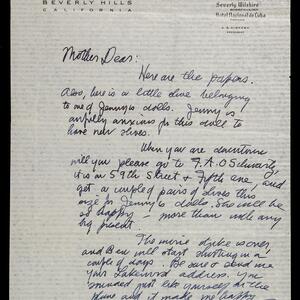 BEVERLY HILLS
CALIFORNIA
Beverly Wilshire
Hotel Nacional de Cuba
PRESIDENT
Mother Dear:
Here are the papers.
Also, here is a little shoe belonging
to one of Jenny's dolls. Jenny is
awfully anxious for this doll to
have new shoes.
When you are downtown
will you please go to F.A.O Schwartz,
it is on 59th Street & Fifth Ave, and
get a couple pairs of shoes this
size for Jenny's dolls. She will be
so happy - more than with any
big present.
The movie strike is over
and Ben will start shooting in a
couple of days. Be sure & send me
your Lakewood address. You
sounded just like yourself on the
phone and it made me happy